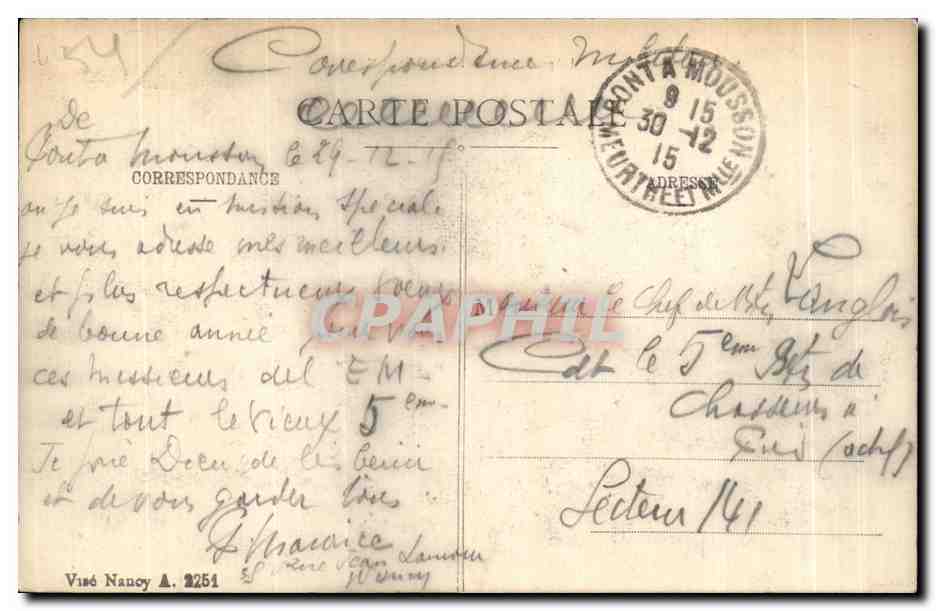 Correspondance Militaire
CARTE POSTALE
PONT A MOUSSON
9 15
30 -12
15
MEURTHE ET Mlle
De
Pont a Mousson le 29-12-15
CORRESPONDANCE
ADRESSE
ou je suis en mission spéciale
je vous adresse mes meilleurs
et plus respectueux voeux
de bonne année pour vous
ces messieurs del E M-
et tout le vieux 5eme
Je prie Dieu de les bénir
et de vous garder tous
Maurice
Rue Jean Lamour
Nancy
Monsieur le Chef de Btn Langlois
Cdt le 5eme Btn de
Chasseurs à
Pied (actif)
Secteur 141
Visé Nancy A. 2251
CPAPHIL